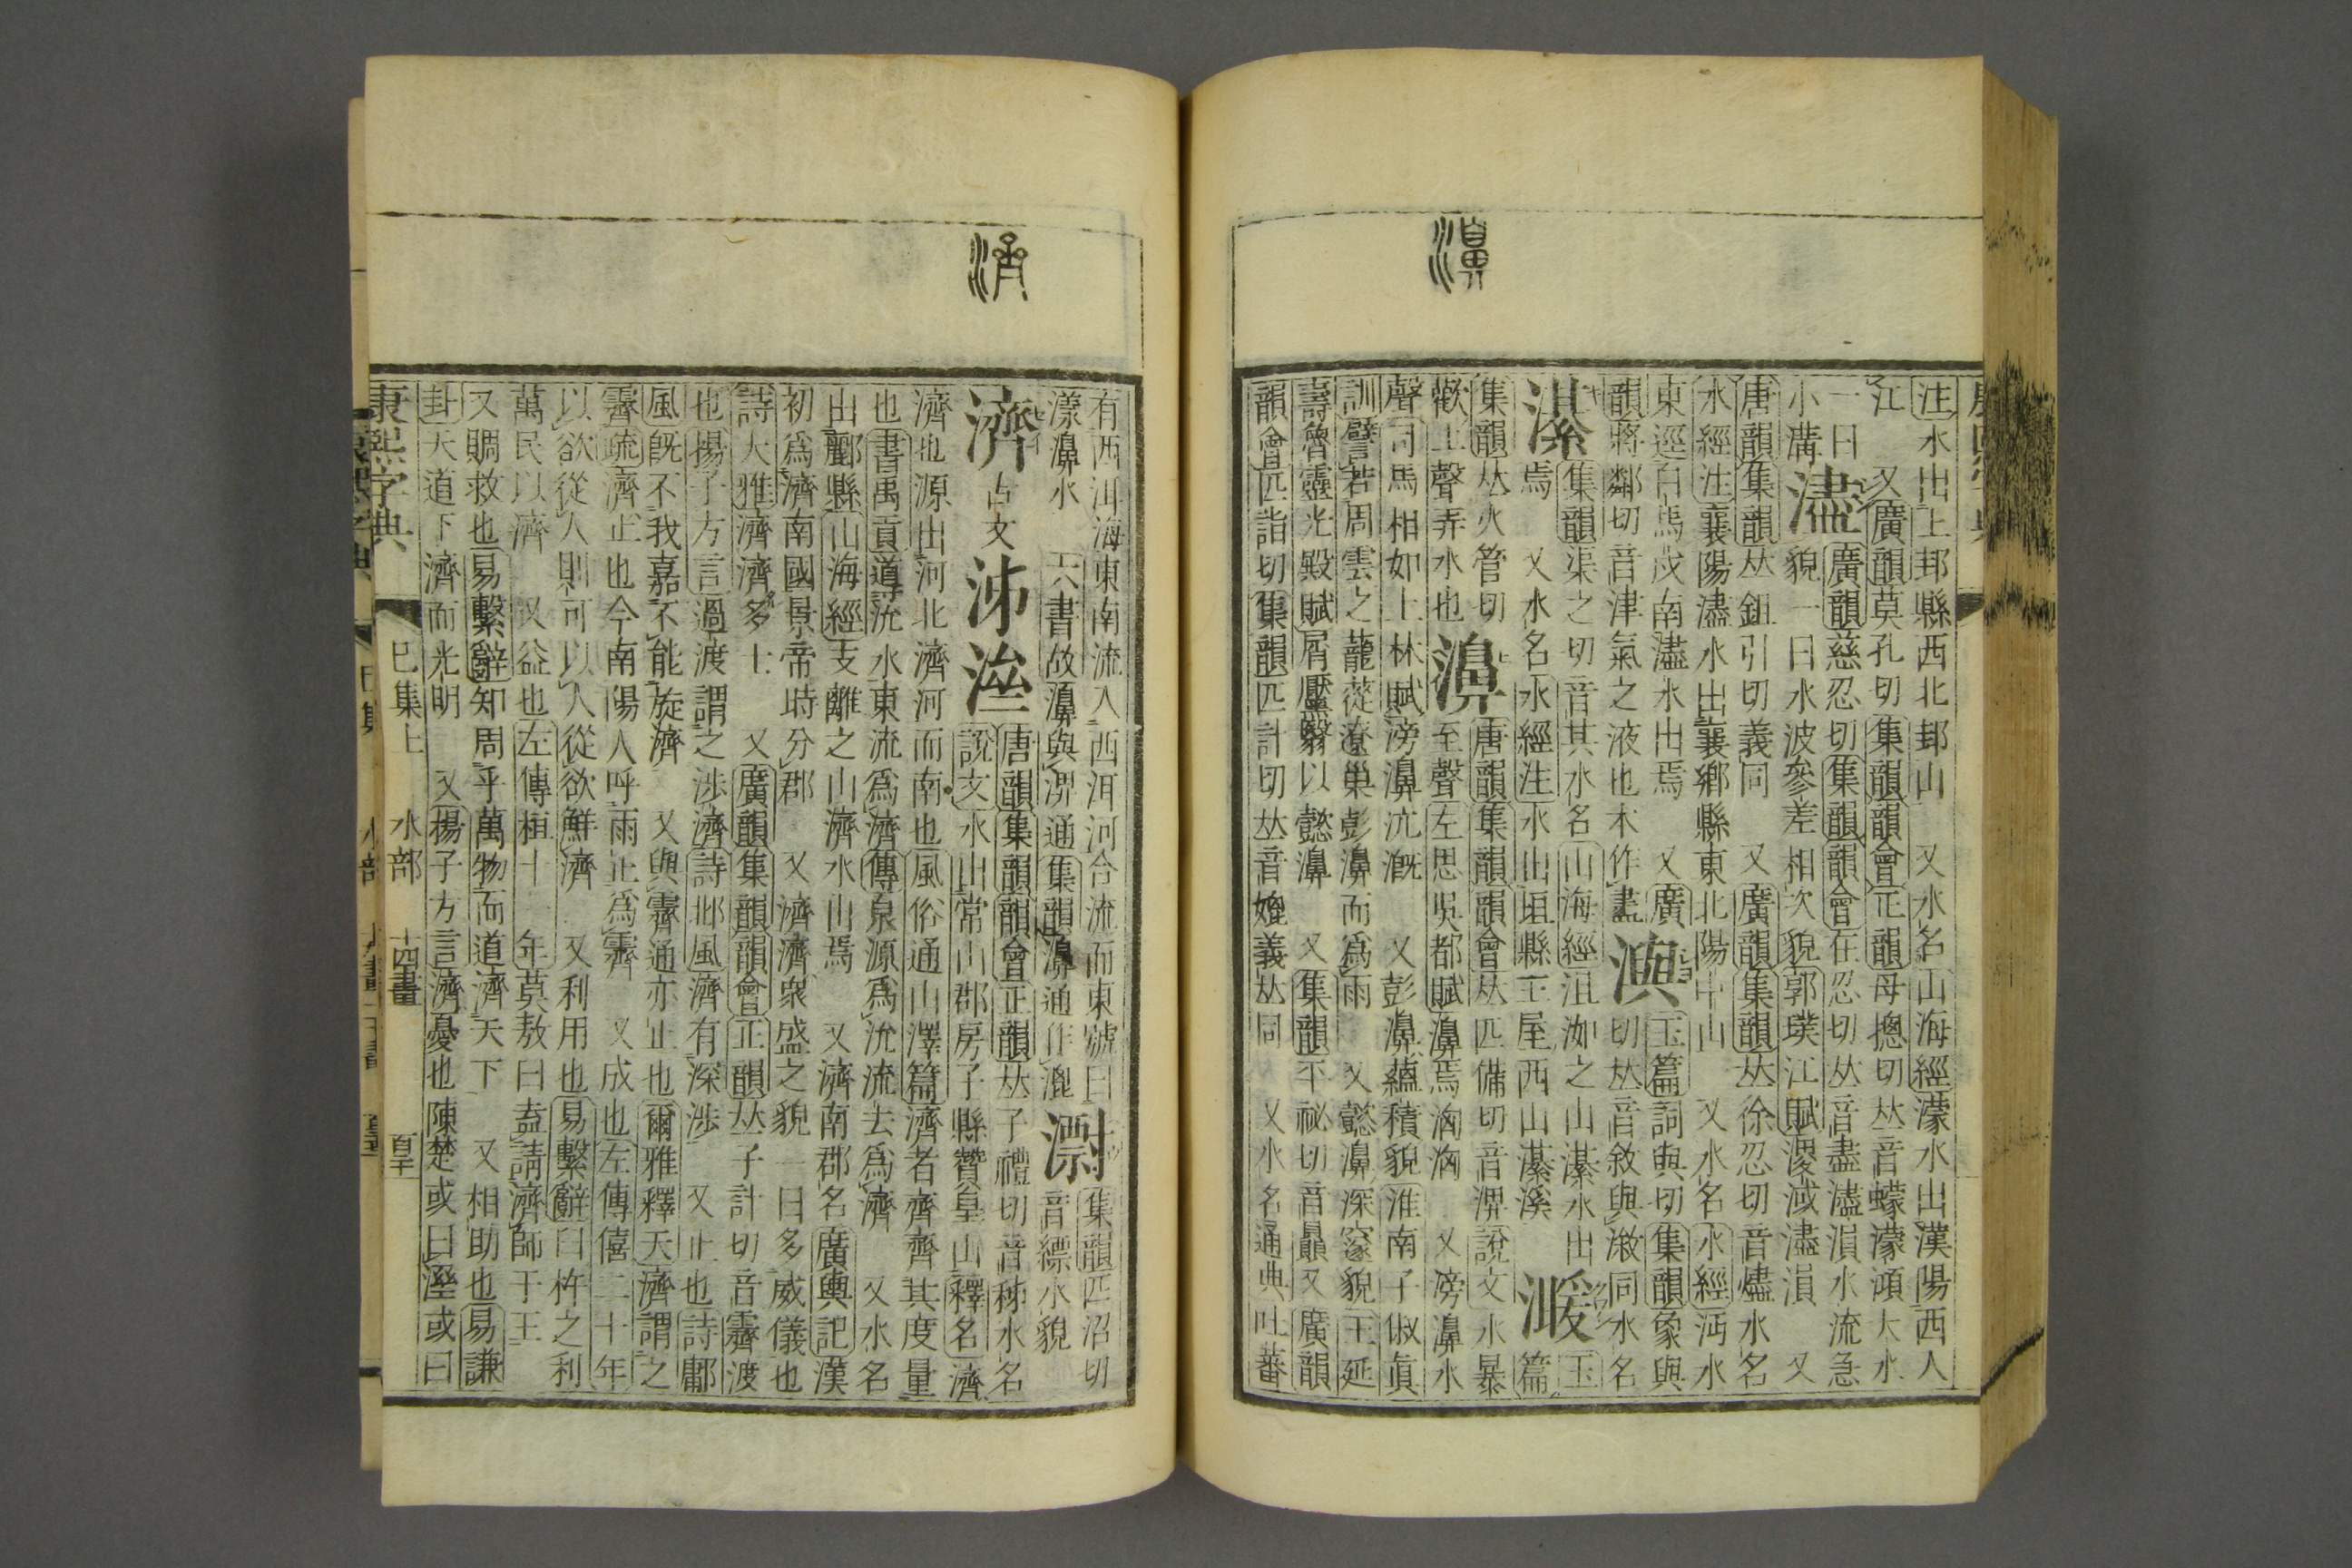 濞
注水出上邽縣西北邽山 又水名山海經濛水出漢陽西入
江 又廣韻莫孔切集韻韻會正韻母摠切𠀤音蠓濛澒大水
一曰
小溝
濜
廣韻慈忍切集韻韻會在忍切𠀤音盡濜溳水流急
貌一曰水波參差相次貌郭璞江賦㴾淢濜溳 又
唐韻集韻𠀤鉏引切義同 又廣韻集韻𠀤徐忍切音燼水名
水經注襄陽濜水出襄鄉縣東北陽中山 又水名水經沔水
東逕白馬戍南濜水出焉 又廣
韻將鄰切音津氣之液也本作𧗁
澳
玉篇詞與切集韻象與
切𠀤音敘與漵同水名
濝
集韻渠之切音其水名山海經沮洳之山濝水出
焉 又水名水經注水出垣縣王屋西山濝溪
湲
玉
篇
集韻𠀤火管切
歡上聲弄水也
濞
唐韻集韻韻會𠀤匹備切音淠說文水暴
至聲左思吳都賦濞焉洶洶 又滂濞水
聲司馬相如上林賦滂濞沆溉 又彭濞蘊積貌淮南子俶眞
訓譬若周雲之蘢蓯遼巢彭濞而爲雨 又懿濞深邃貌王延
壽魯靈光殿賦屑黶翳以懿濞 又集韻平祕切音贔又廣韻
韻會匹詣切集韻匹計切𠀤音媲義𠀤同 又水名通典吐蕃
濟
有西洱海東南流入西洱河合流而東號曰
漾濞水 六書故濞與淠通集韻濞通作淠
㵱
集韻匹沼切
音縹水貌
濟
古文
泲
𣸈
唐韻集韻韻會正韻𠀤子禮切音秭水名
說文水出常山郡房子縣贊皇山釋名濟
濟也源出河北濟河而南也風俗通山澤篇濟者齊齊其度量
也書禹貢導沇水東流爲濟傳泉源爲沇流去爲濟 又水名
出酈縣山海經支離之山濟水出焉 又濟南郡名廣輿記漢
初爲濟南國景帝時分郡 又濟濟衆盛之貌一曰多威儀也
詩大雅濟濟多士 又廣韻集韻韻會正韻𠀤子計切音霽渡
也揚子方言過渡謂之涉濟詩邶風濟有深涉 又止也詩鄘
風旣不我嘉不能旋濟 又與霽通亦止也爾雅釋天濟謂之
霽疏濟止也今南陽人呼雨止爲霽 又成也左傳僖二十年
以欲從人則可以人從欲鮮濟 又利用也易繫辭曰杵之利
萬民以濟 又益也左傳桓十一年莫敖曰盍請濟師于王
又賙救也易繫辭知周乎萬物而道濟天下 又相助也易謙
卦天道下濟而光明 又揚子方言濟憂也陳楚或曰溼或曰
康熙字典 巳集上 水部 十四畫